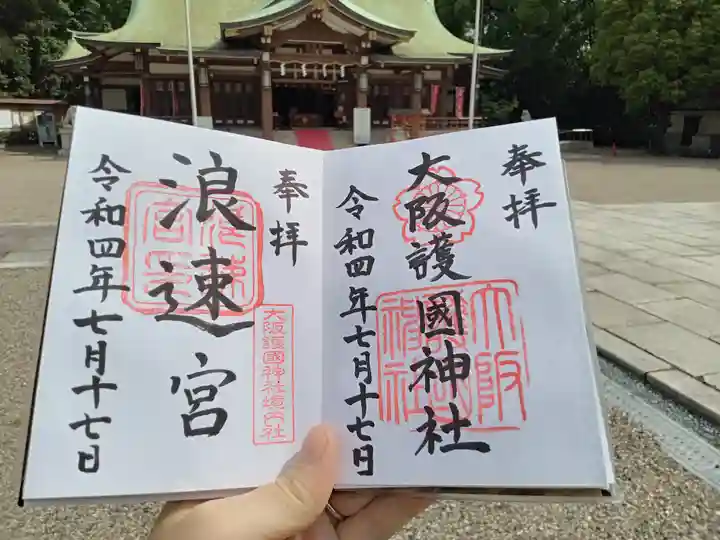 奉拝
大阪護國神社
令和四年七月十七日
大阪
護國
神社
奉拝
浪速宮
大阪護國神社境内社
令和四年七月十七日